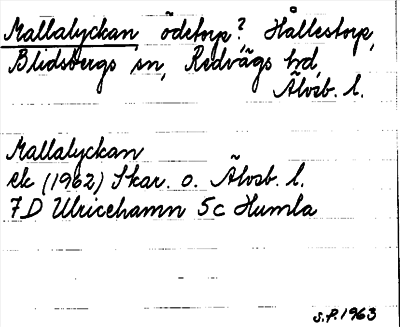 Mallalyckan ödetorp? Hållestorp,
Blidsbergs sn, Redvägs hd,
Älvsb. l.
Mallalyckan
ek (1962) Skar. o. Älvsb. l.
7D Ulricehamn 5c Humla
S.F. 1963